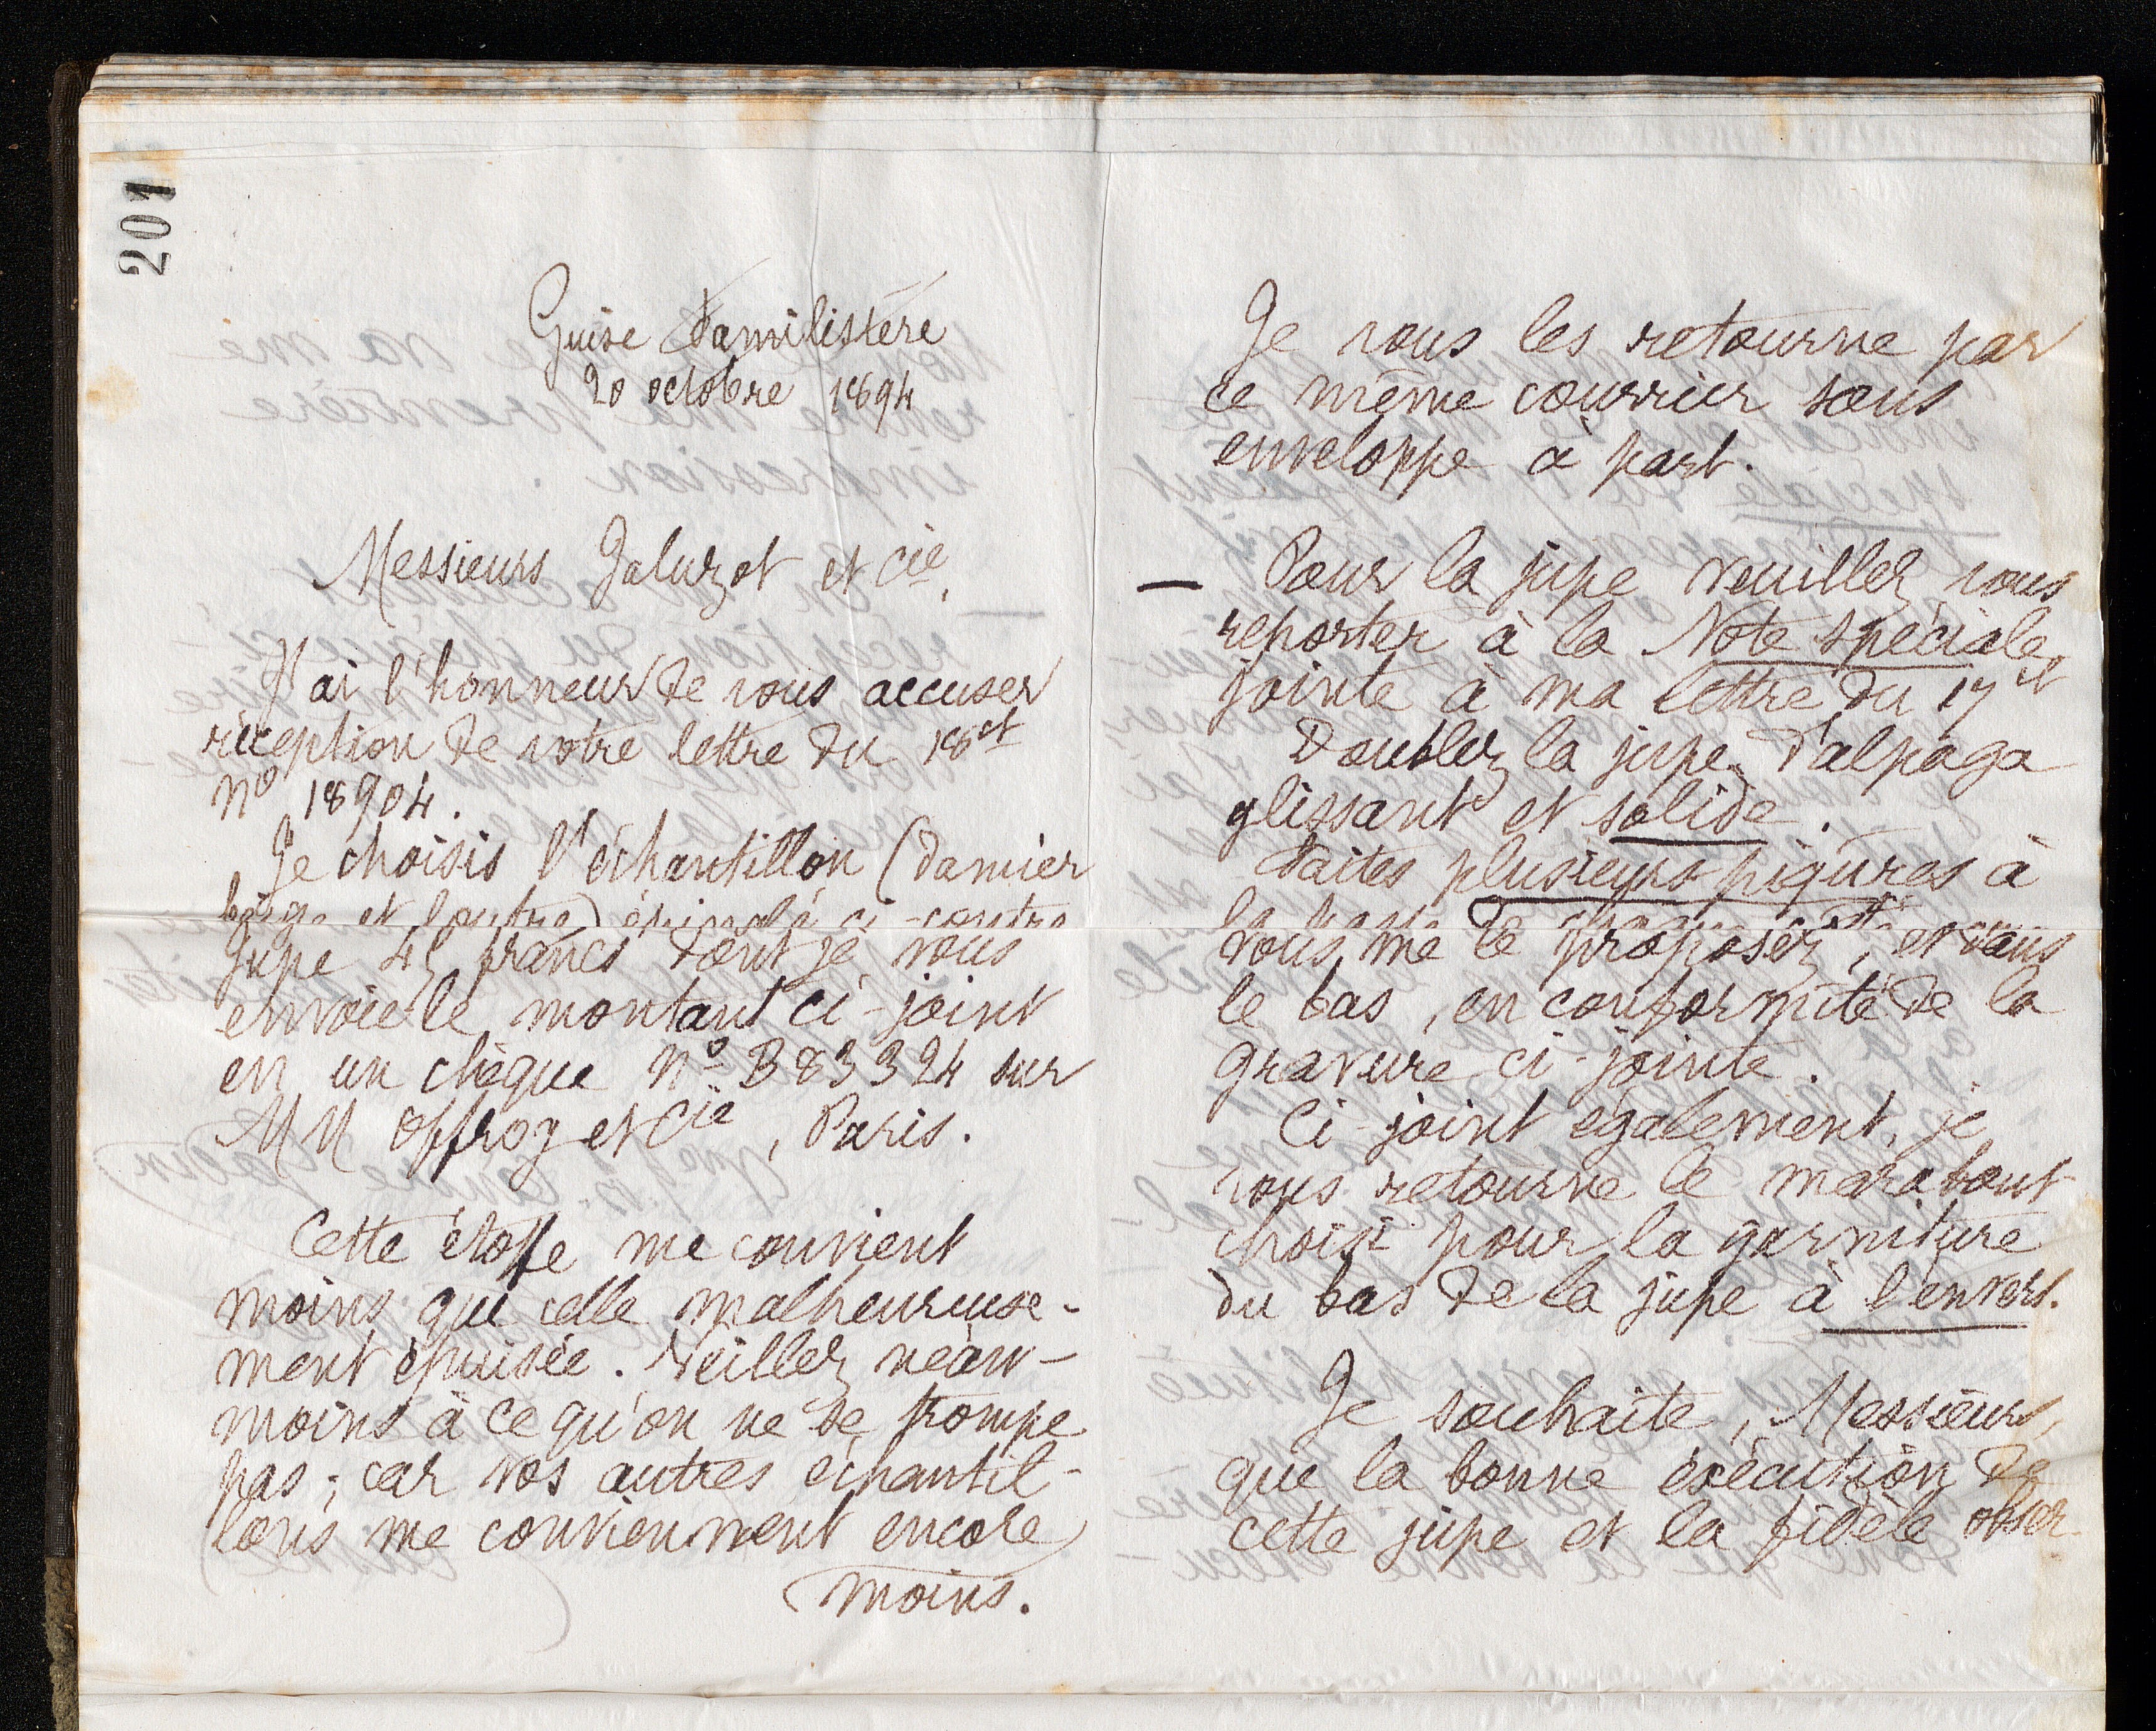 201
Guise Familistère
20 octobre 1894
Messieurs Jaluzot et Cie,
J'ai l'honneur de vous accuser
réception de votre lettre du 18 ct
No 18904.
Je choisis l'échantillon (damier
beige et loutre) épinglé ci-contre
Jupe 45 francs dont je vous
envoie le montant ci-joint
en un chèque No B 83324 sur
MM Offroy et Cie, Paris.
Cette étoffe me convient
moins que celle malheureuse-
ment épuisée. Veillez néan-
moins à ce qu'on ne se trompe
pas ; car vos autres échantil-
lons me conviennent encore
moins.
Je vous les retourne par
ce même courrier sous
enveloppe à part.
— Pour la jupe veuillez vous
reporter à la Note spéciale,
jointe à ma lettre du 17 ct
Doublez la jupe d'alpaga
glissant et solide.
Faites plusieurs piqûres à
vous me le proposez, et vers
le bas, en conformité de la
gravure ci-jointe.
Ci-joint également, je
vous retourne le marabout
choisi pour la garniture
du bas de la jupe à l'envers.
Je souhaite, Messieurs,
que la bonne exécution de
cette jupe et la fidèle obser-